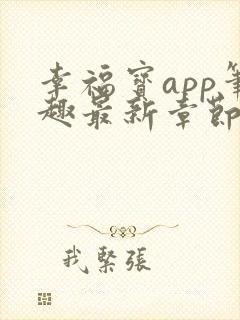 幸福寶app筆
趣最新章節
我緊張